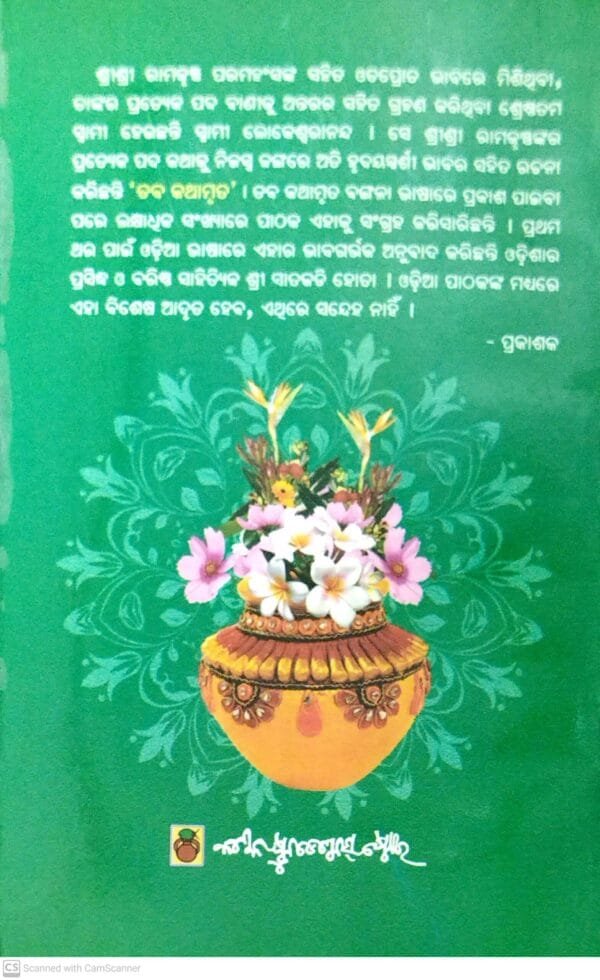 ଶ୍ରୀଶ୍ରୀ ରାମକୃଷ୍ଣ ପରମହଂସଙ୍କ ସହିତ ଓତପ୍ରୋତ ଭାବରେ ମିଶିଥିବା,
ତାଙ୍କର ପ୍ରତ୍ୟେକ ପଦ ବାଣୀକୁ ଅନ୍ତରର ସହିତ ଗ୍ରହଣ କରିଥିବା ଶ୍ରେଷ୍ଠତମ
ସ୍ବାମୀ ହେଉଛନ୍ତି ସ୍ବାମୀ ଲୋକେଶ୍ବରାନନ୍ଦ । ସେ ଶ୍ରୀଶ୍ରୀ ରାମକୃଷ୍ଣଙ୍କର
ପ୍ରତ୍ୟେକ ପଦ କଥାକୁ ନିଜସ୍ବ ଢଙ୍ଗରେ ଅତି ହୃଦୟସ୍ପର୍ଶୀ ଭାବର ସହିତ ରଚନା
କରିଛନ୍ତି 'ତବ କଥାମୃତ' । ତବ କଥାମୃତ ବଙ୍ଗଳା ଭାଷାରେ ପ୍ରକାଶ ପାଇବା
ପରେ ଲକ୍ଷାଧିକ ସଂଖ୍ୟାରେ ପାଠକ ଏହାକୁ ସଂଗ୍ରହ କରିସାରିଛନ୍ତି । ପ୍ରଥମ
ଥର ପାଇଁ ଓଡ଼ିଆ ଭାଷାରେ ଏହାର ଭାବଗର୍ଭକ ଅନୁବାଦ କରିଛନ୍ତି ଓଡ଼ିଶାର
ପ୍ରସିଦ୍ଧ ଓ ବରିଷ୍ଠ ସାହିତ୍ୟିକ ଶ୍ରୀ ସାତକଡି ହୋତା । ଓଡ଼ିଆ ପାଠକଙ୍କ ମଧ୍ୟରେ
ଏହା ବିଶେଷ ଆଦୃତ ହେବ, ଏଥିରେ ସନ୍ଦେହ ନାହିଁ ।
- ପ୍ରକାଶକ
CS Scanned with CamScanner